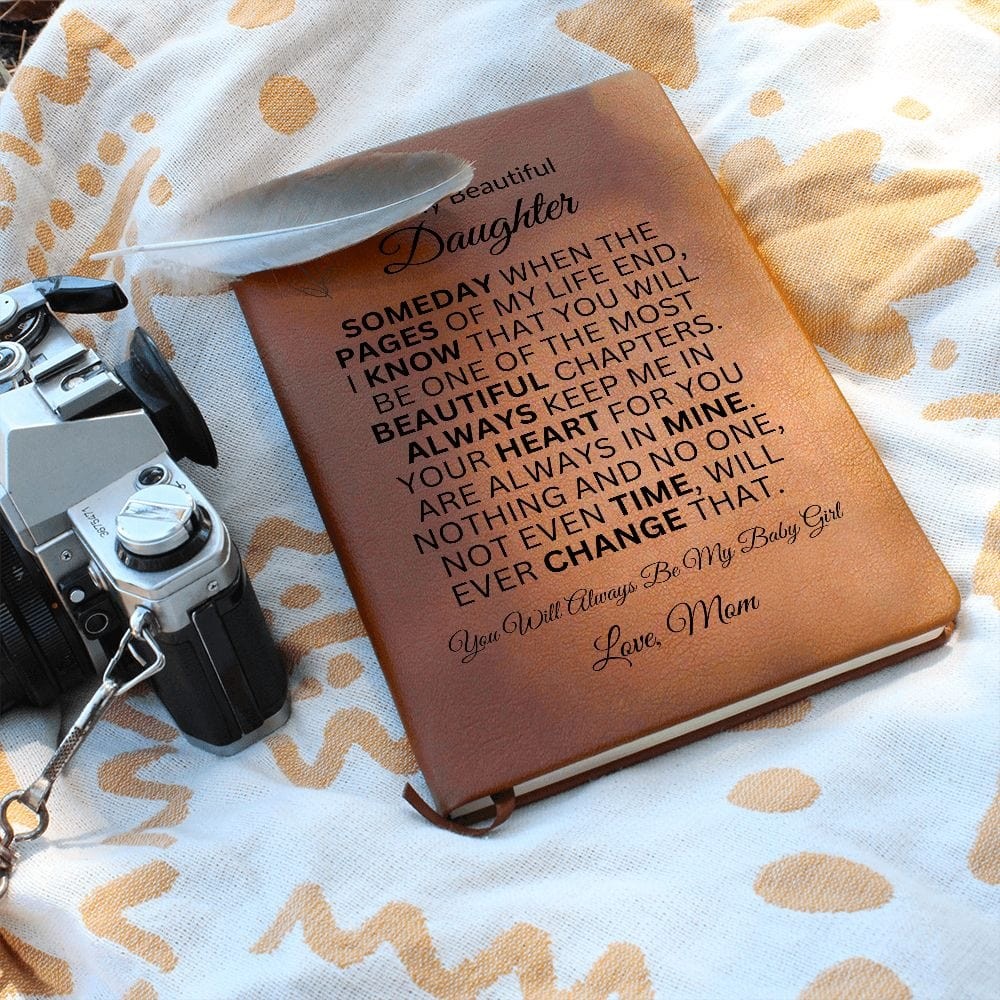 Beautiful
Daughter
SOMEDAY WHEN THE
PAGES OF MY LIFE END,
I KNOW THAT YOU WILL
BE ONE OF THE MOST
BEAUTIFUL CHAPTERS.
ALWAYS KEEP ME IN
YOUR HEART FOR YOU
ARE ALWAYS IN MINE.
NOTHING AND NO ONE,
NOT EVEN TIME, WILL
EVER CHANGE THAT.
You Will Always Be My Baby Girl
Love, Mom
3675471